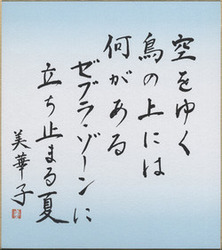 空をゆく
鳥の上には
何がある
ゼブラ・ゾーンに
立ち止まる夏
美華子